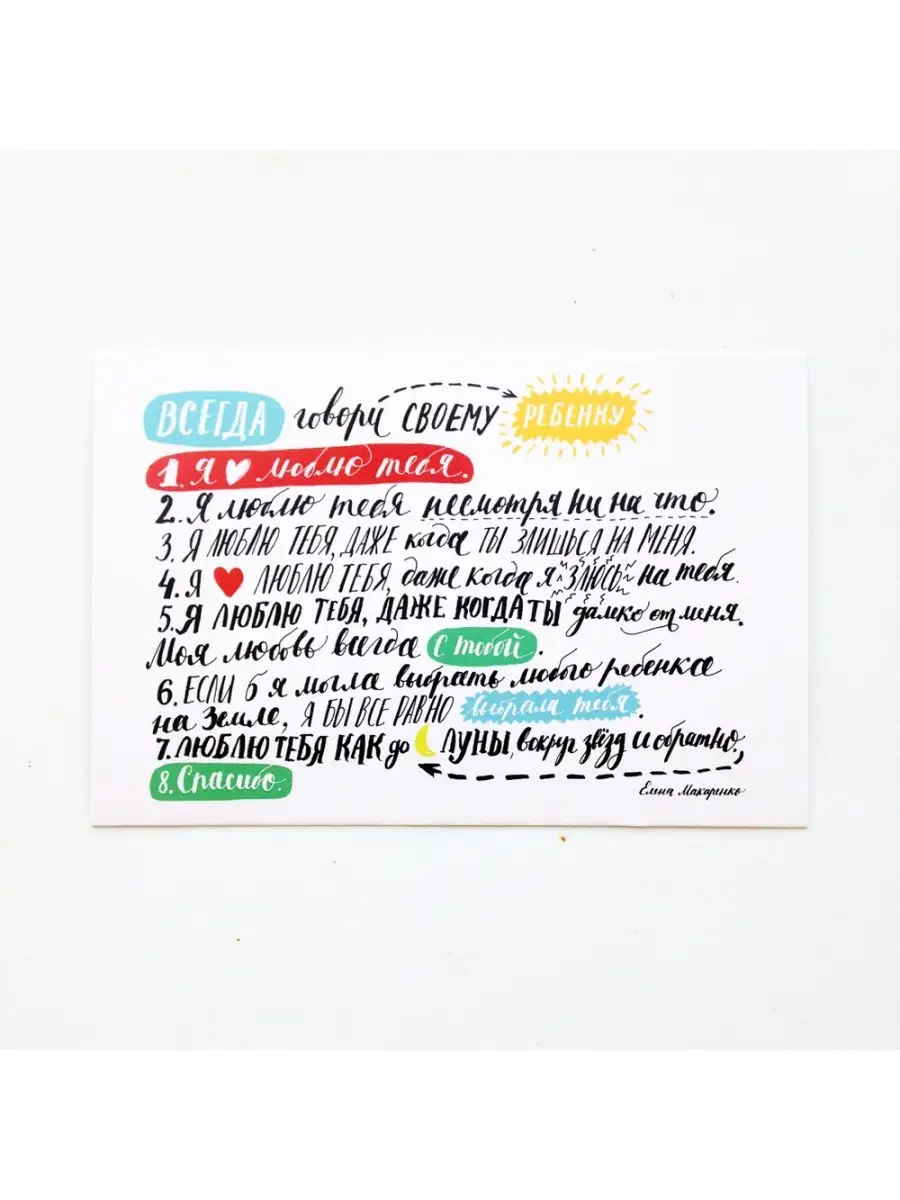 ВСЕГДА говори СВОЕМУ РЕБЕНКУ
1. Я люблю тебя.
2. Я люблю тебя несмотря ни на что.
3. Я ЛЮБЛЮ ТЕБЯ, ДАЖЕ когда ТЫ ЗЛИШЬСЯ НА МЕНЯ.
4. Я ЛЮБЛЮ ТЕБЯ, даже когда я ЗЛЮСЬ на тебя.
5. Я ЛЮБЛЮ ТЕБЯ, ДАЖЕ КОГДА ТЫ далеко от меня.
Моя любовь всегда с тобой.
6. ЕСЛИ б я могла выбрать любого ребенка
на Земле, Я БЫ ВСЕ РАВНО выбрала тебя.
7. ЛЮБЛЮ ТЕБЯ КАК до ЛУНЫ, вокруг звёзд и обратно,
8. Спасибо.
Елена Макаренко